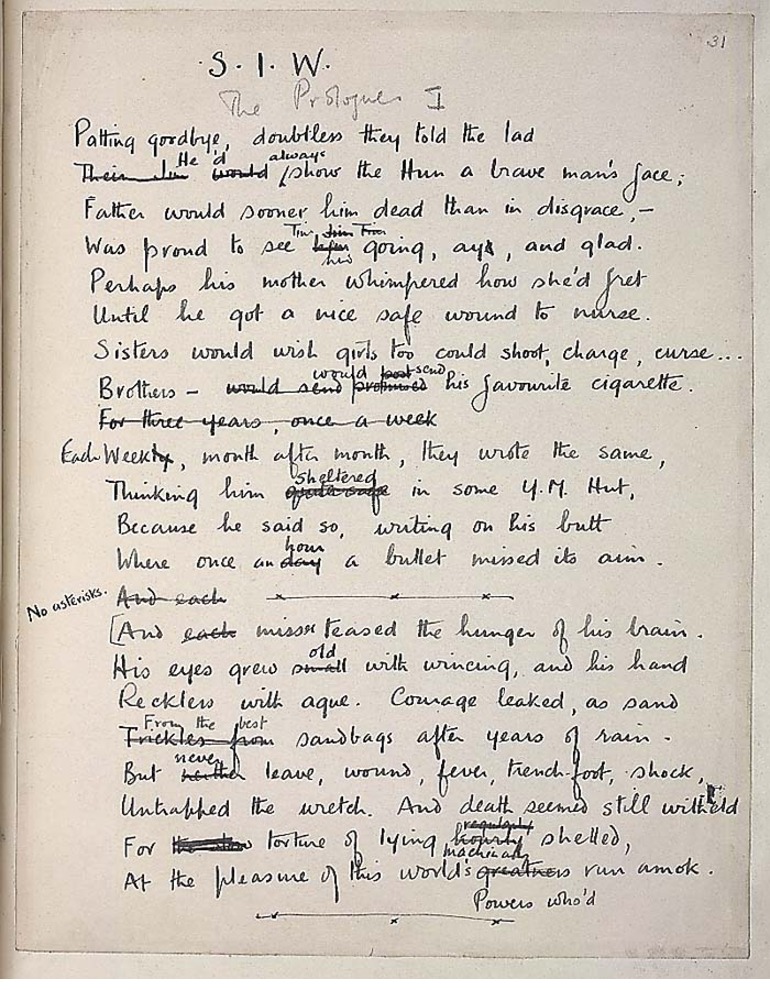 31
S. I. W.
The Prologue I
Patting goodbye, doubtless they told the lad
He'd always
Their would show the Hun a brave man's face;
Father would sooner him dead than in disgrace,—
Tim Jim Tim
Was proud to see him going, aye, and glad.
his
Perhaps his mother whimpered how she'd fret
Until he got a nice safe wound to nurse.
Sisters would wish girls too could shoot, charge, curse...
would post send
Brothers — would send promised his favourite cigarette.
For three years, once a week
Each Weekly, month after month, they wrote the same,
sheltered
Thinking him quite safe in some Y.M. Hut,
Because he said so, writing on his butt
hour
Where once an day a bullet missed its aim.
No asterisks. And each
[And each misses teased the hunger of his brain.
old
His eyes grew small with wincing, and his hand
Reckless with ague. Courage leaked, as sand
From the best
Trickles from sandbags after years of rain.
never
But neither leave, wound, fever, trench-foot, shock,
Untrapped the wretch. And death seemed still witheld
regularly
For torture of lying hourly shelled,
machinally
At the pleasure of this world's greatness run amok.
Powers who'd